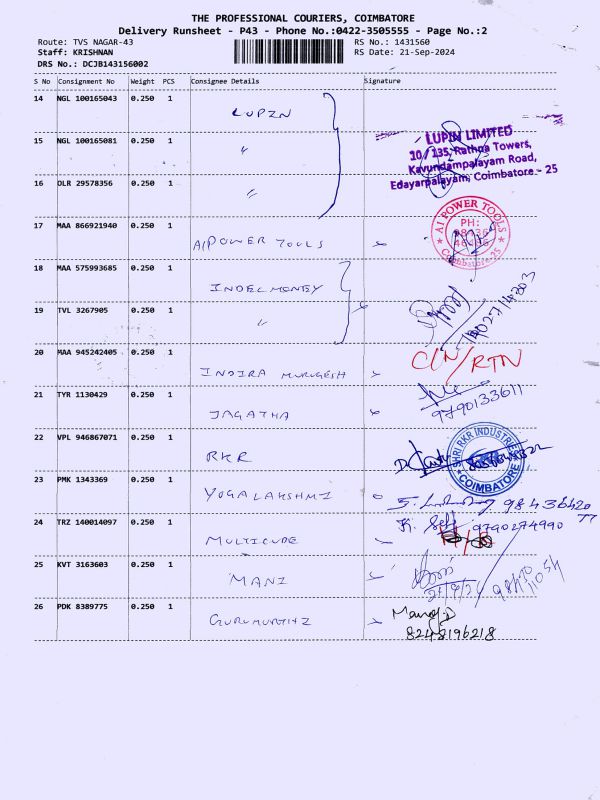 THE PROFESSIONAL COURIERS, COIMBATORE
Delivery Runsheet - P43 - Phone No.:0422-3505555 - Page No.:2
Route: TVS NAGAR-43 RS No.: 1431560
Staff: KRISHNAN RS Date: 21-Sep-2024
DRS No.: DCJB143156002
S No Consignment No Weight PCS Consignee Details Signature
14 NGL 100165043 0.250 1 LUPIN
15 NGL 100165081 0.250 1 "
LUPIN LIMITED
10/135, Rathna Towers,
Kavundampalayam Road,
Edayarpalayam, Coimbatore - 25
16 OLR 29578356 0.250 1 "
17 MAA 866921940 0.250 1 AI POWER TOOLS
AI POWER TOOLS
PH:
Coimbatore-25
18 MAA 575993685 0.250 1 INDEL MONEY
19 TVL 3267905 0.250 1 "
20 MAA 945242405 0.250 1 INDIRA MURUGESH CIN/RTN
21 TYR 1130429 0.250 1 JAGATHA 9790133611
22 VPL 946867071 0.250 1 RKR
SHRI RKR INDUSTRIES
COIMBATORE
23 PMK 1343369 0.250 1 YOGALAKSHMI
24 TRZ 140014097 0.250 1 MULTICUBE 9790274990
25 KVT 3163603 0.250 1 MANI
26 PDK 8389775 0.250 1 GURUMURTHI Manoj.D
8248196218